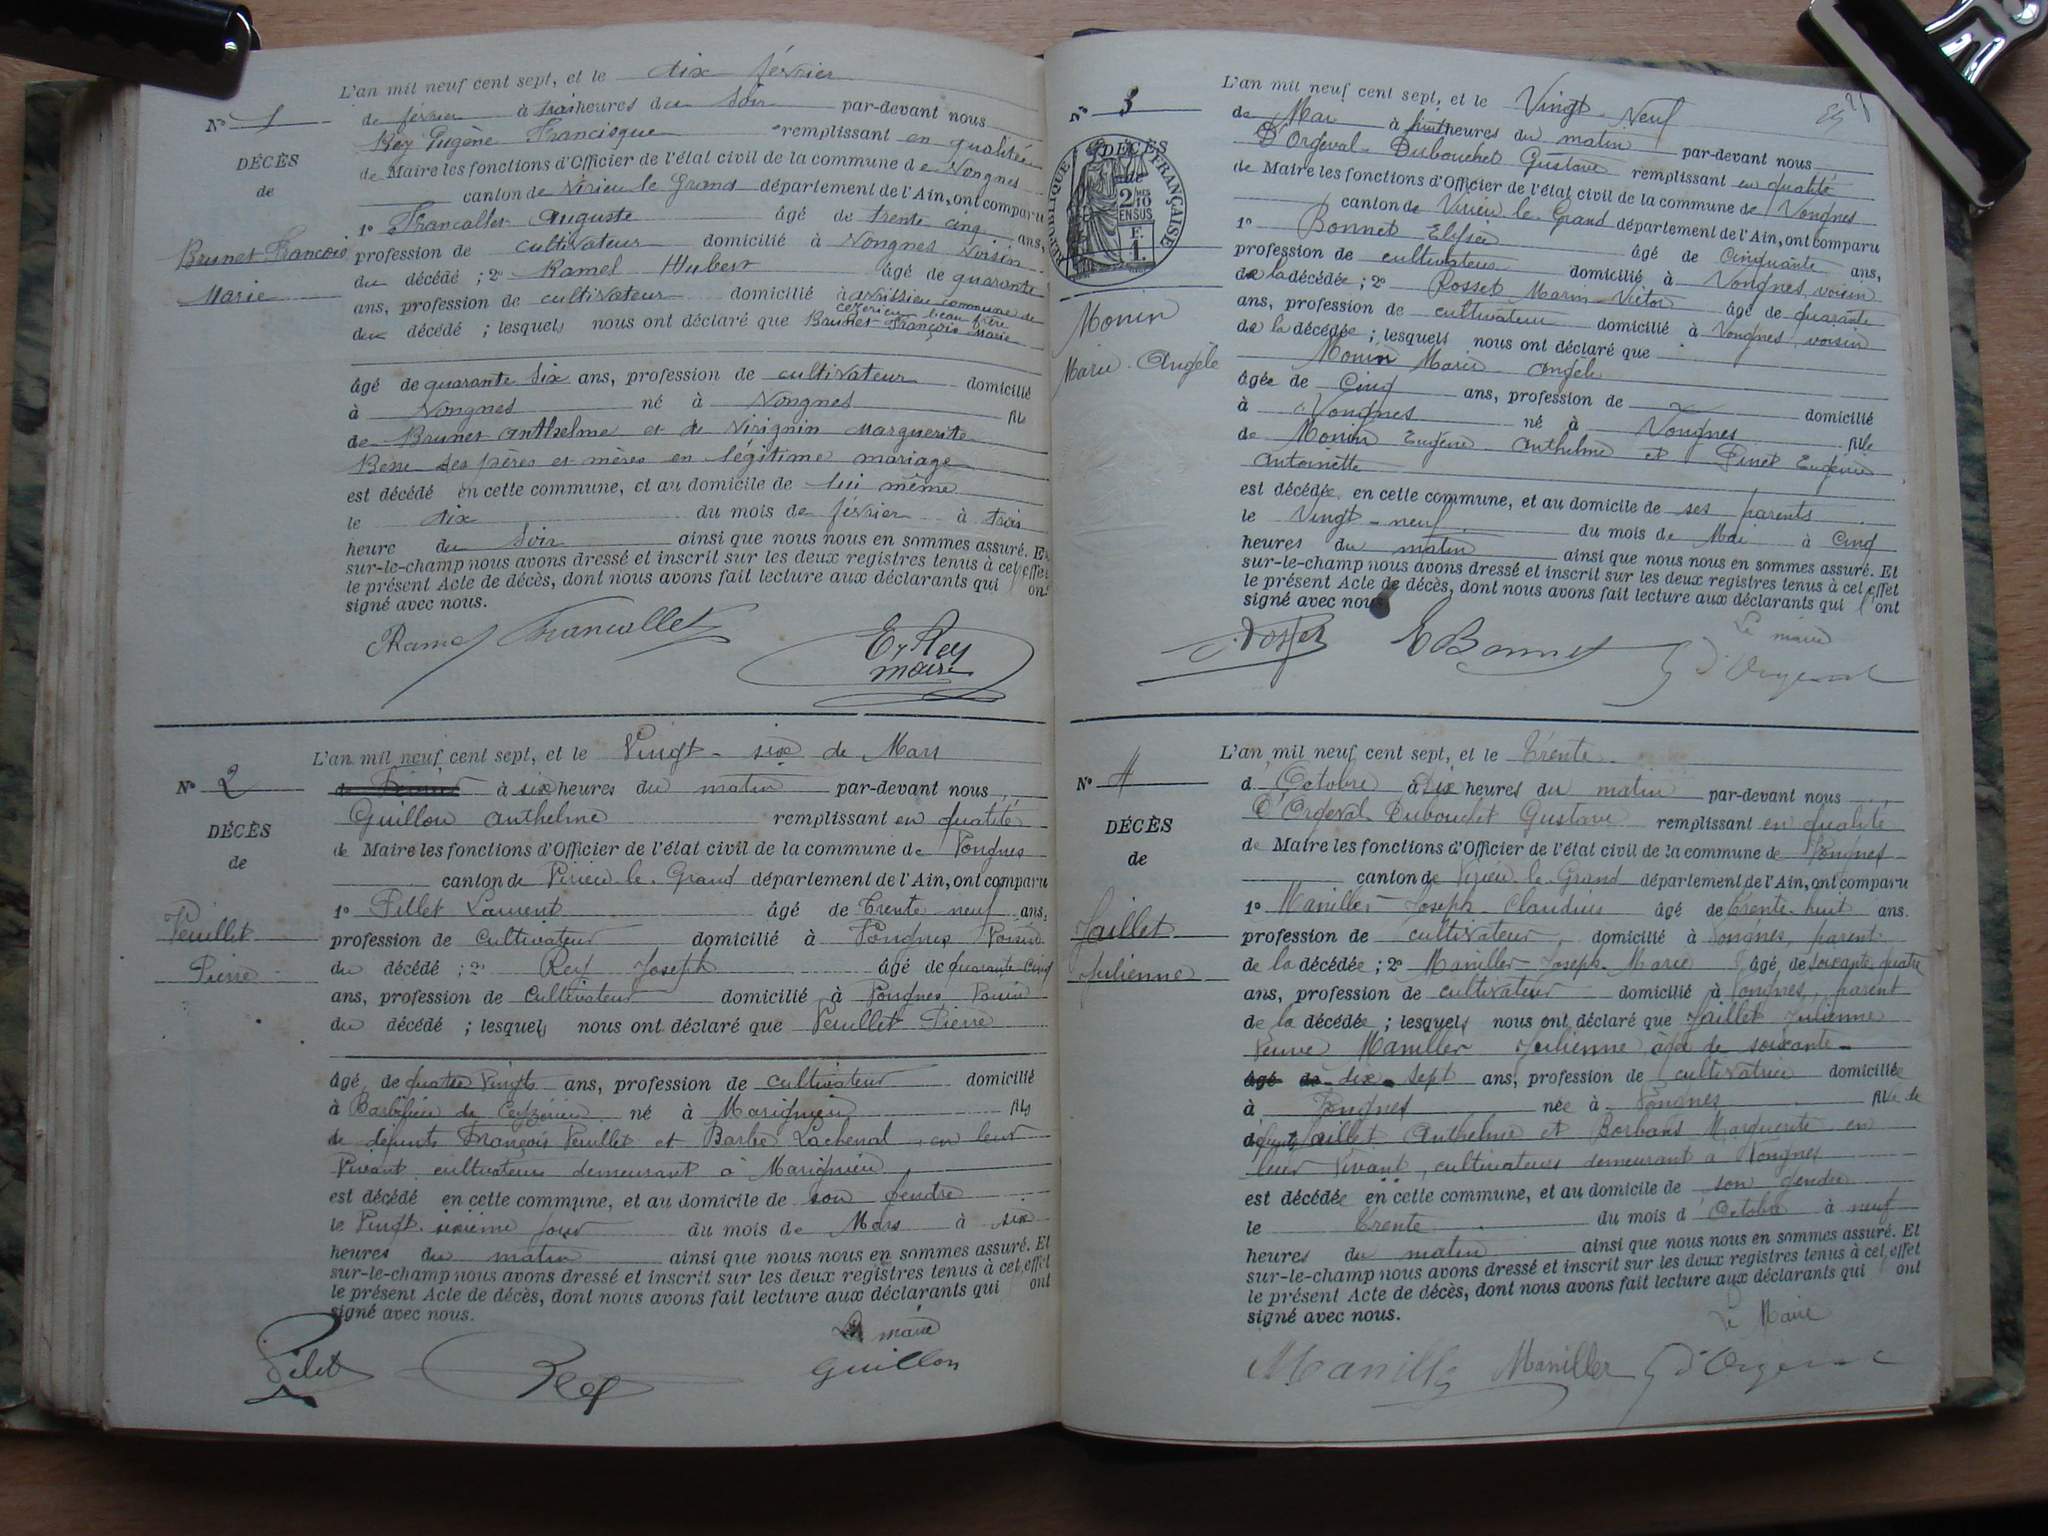 L'an mil neuf cent sept, et le dix février
N° 1
de février à trois heures du soir par-devant nous
Rey Eugène Francisque remplissant en qualitée
DÉCÈS
de Maire les fonctions d'Officier de l'état civil de la commune de Vongnes
de
canton de Virieu le Grand département de l'Ain, ont comparu
1° Francallet Auguste âgé de trente cinq ans,
Brunet François
Marie
profession de cultivateur domicilié à Vongnes Voisin
du décédé ; 2° Ramel Hubert âgé de quarante
ans, profession de cultivateur domicilié à commune de
ceyzerieu beau frère
du décédé ; lesquels nous ont déclaré que Brunet François Marie
âgé de quarante six ans, profession de cultivateur domicilié
à Vongnes né à Vongnes fils
de Brunet Anthelme et de Virignin Marguerite
ses pères et mères en légitime mariage
est décédé en cette commune, et au domicile de lui même
le dix du mois de février à trois
heure du soir ainsi que nous nous en sommes assuré. Et
sur-le-champ nous avons dressé et inscrit sur les deux registres tenus à cet effet
le présent Acte de décès, dont nous avons fait lecture aux déclarants qui ont
signé avec nous.
Ramel Francallet E. Rey
maire
L'an mil neuf cent sept, et le Vingt-six de Mars
N° 2
à six heures du matin par-devant nous
Guillon Anthelme remplissant en qualité
DÉCÈS
de Maire les fonctions d'Officier de l'état civil de la commune de Vongnes
de
canton de Virieu-le-Grand département de l'Ain, ont comparu
1° Pillet Laurent âgé de Trente neuf ans,
Veuillet
Pierre
profession de cultivateur domicilié à Vongnes Voisin
du décédé ; 2° Rey Joseph âgé de quarante-cinq
ans, profession de cultivateur domicilié à Vongnes Voisin
du décédé ; lesquels nous ont déclaré que Veuillet Pierre
âgé de quatre Vingts ans, profession de cultivateur domicilié
à de Ceyzérieu né à Marignieu fils
de défunts François Veuillet et Barbe Lachenal en leur
Vivant cultivateurs demeurant à Marignieu
est décédé en cette commune, et au domicile de son gendre
le Vingt-sixième jour du mois de Mars à six
heures du matin ainsi que nous nous en sommes assuré. Et
sur-le-champ nous avons dressé et inscrit sur les deux registres tenus à cet effet
le présent Acte de décès, dont nous avons fait lecture aux déclarants qui ont
signé avec nous.
Le maire
Pilet Rey Guillon
L'an mil neuf cent sept, et le Vingt-Neuf
N° 3
de Mai à huit heures du matin par-devant nous
D'Orgeval-Dubouchet Gustave remplissant en qualité
DÉCÈS
de
RÉPUBLIQUE FRANÇAISE
2/10
EN SUS
F.
1.
de Maire les fonctions d'Officier de l'état civil de la commune de Vongnes
canton de Virieu-le-Grand département de l'Ain, ont comparu
1° Bonnet Elisée âgé de Cinquante ans,
profession de cultivateur domicilié à Vongnes, voisin
de la décédée ; 2° Rosset Marin-Victor âgé de quarante
Monin
Marie-Angèle
ans, profession de cultivateur domicilié à Vongnes, voisin
de la décédée ; lesquels nous ont déclaré que
Monin Marie-Angèle
âgée de Cinq ans, profession de domicilié
à Vongnes né à Vongnes fille
de Monin Eugène Anthelme et Pinet Eugénie
Antoinette
est décédée en cette commune, et au domicile de ses parents
le Vingt-neuf du mois de Mai à Cinq
heures du matin ainsi que nous nous en sommes assuré. Et
sur-le-champ nous avons dressé et inscrit sur les deux registres tenus à cet effet
le présent Acte de décès, dont nous avons fait lecture aux déclarants qui l'ont
signé avec nous.
Le maire
Rosset E Bonnet G d'Orgeval
L'an mil neuf cent sept, et le Trente
N° 4
d'Octobre à dix heures du matin par-devant nous
D'Orgeval Dubouchet Gustave remplissant en qualité
DÉCÈS
de Maire les fonctions d'Officier de l'état civil de la commune de Vongnes
de
canton de Virieu-le-Grand département de l'Ain, ont comparu
1° Maniller Joseph-Claudius âgé de Trente-huit ans.
Jaillet
Julienne
profession de cultivateur, domicilié à Vongnes, parent
de la décédée ; 2° Maniller Joseph-Marie âgé de soixante quatre
ans, profession de cultivateur domicilié à Vongnes, parent
de la décédée ; lesquels nous ont déclaré que Jaillet Julienne
Veuve Maniller Julienne âgée de soixante-
âgé de dix-sept ans, profession de cultivatrice domiciliée
à Vongnes née à Vongnes fille de
défunts Jaillet Anthelme et Borbans Marguerite en
leur Vivant, cultivateurs demeurant à Vongnes
est décédée en cette commune, et au domicile de son gendre
le Trente du mois d'Octobre à neuf
heures du matin ainsi que nous nous en sommes assuré. Et
sur-le-champ nous avons dressé et inscrit sur les deux registres tenus à cet effet
le présent Acte de décès, dont nous avons fait lecture aux déclarants qui ont
signé avec nous.
Le Maire
Maniller Maniller G d'Orgeval